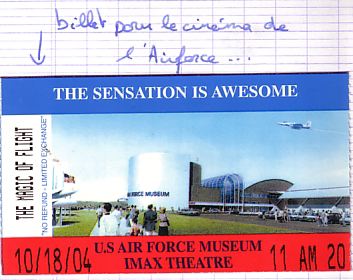 billet pour le cinéma de
l'Airforce ...
THE SENSATION IS AWESOME
THE MAGIC OF FLIGHT
"NO REFUND - LIMITED EXCHANGE"
AIR FORCE MUSEUM
U.S AIR FORCE MUSEUM
IMAX THEATRE
10/18/04
11 AM 20